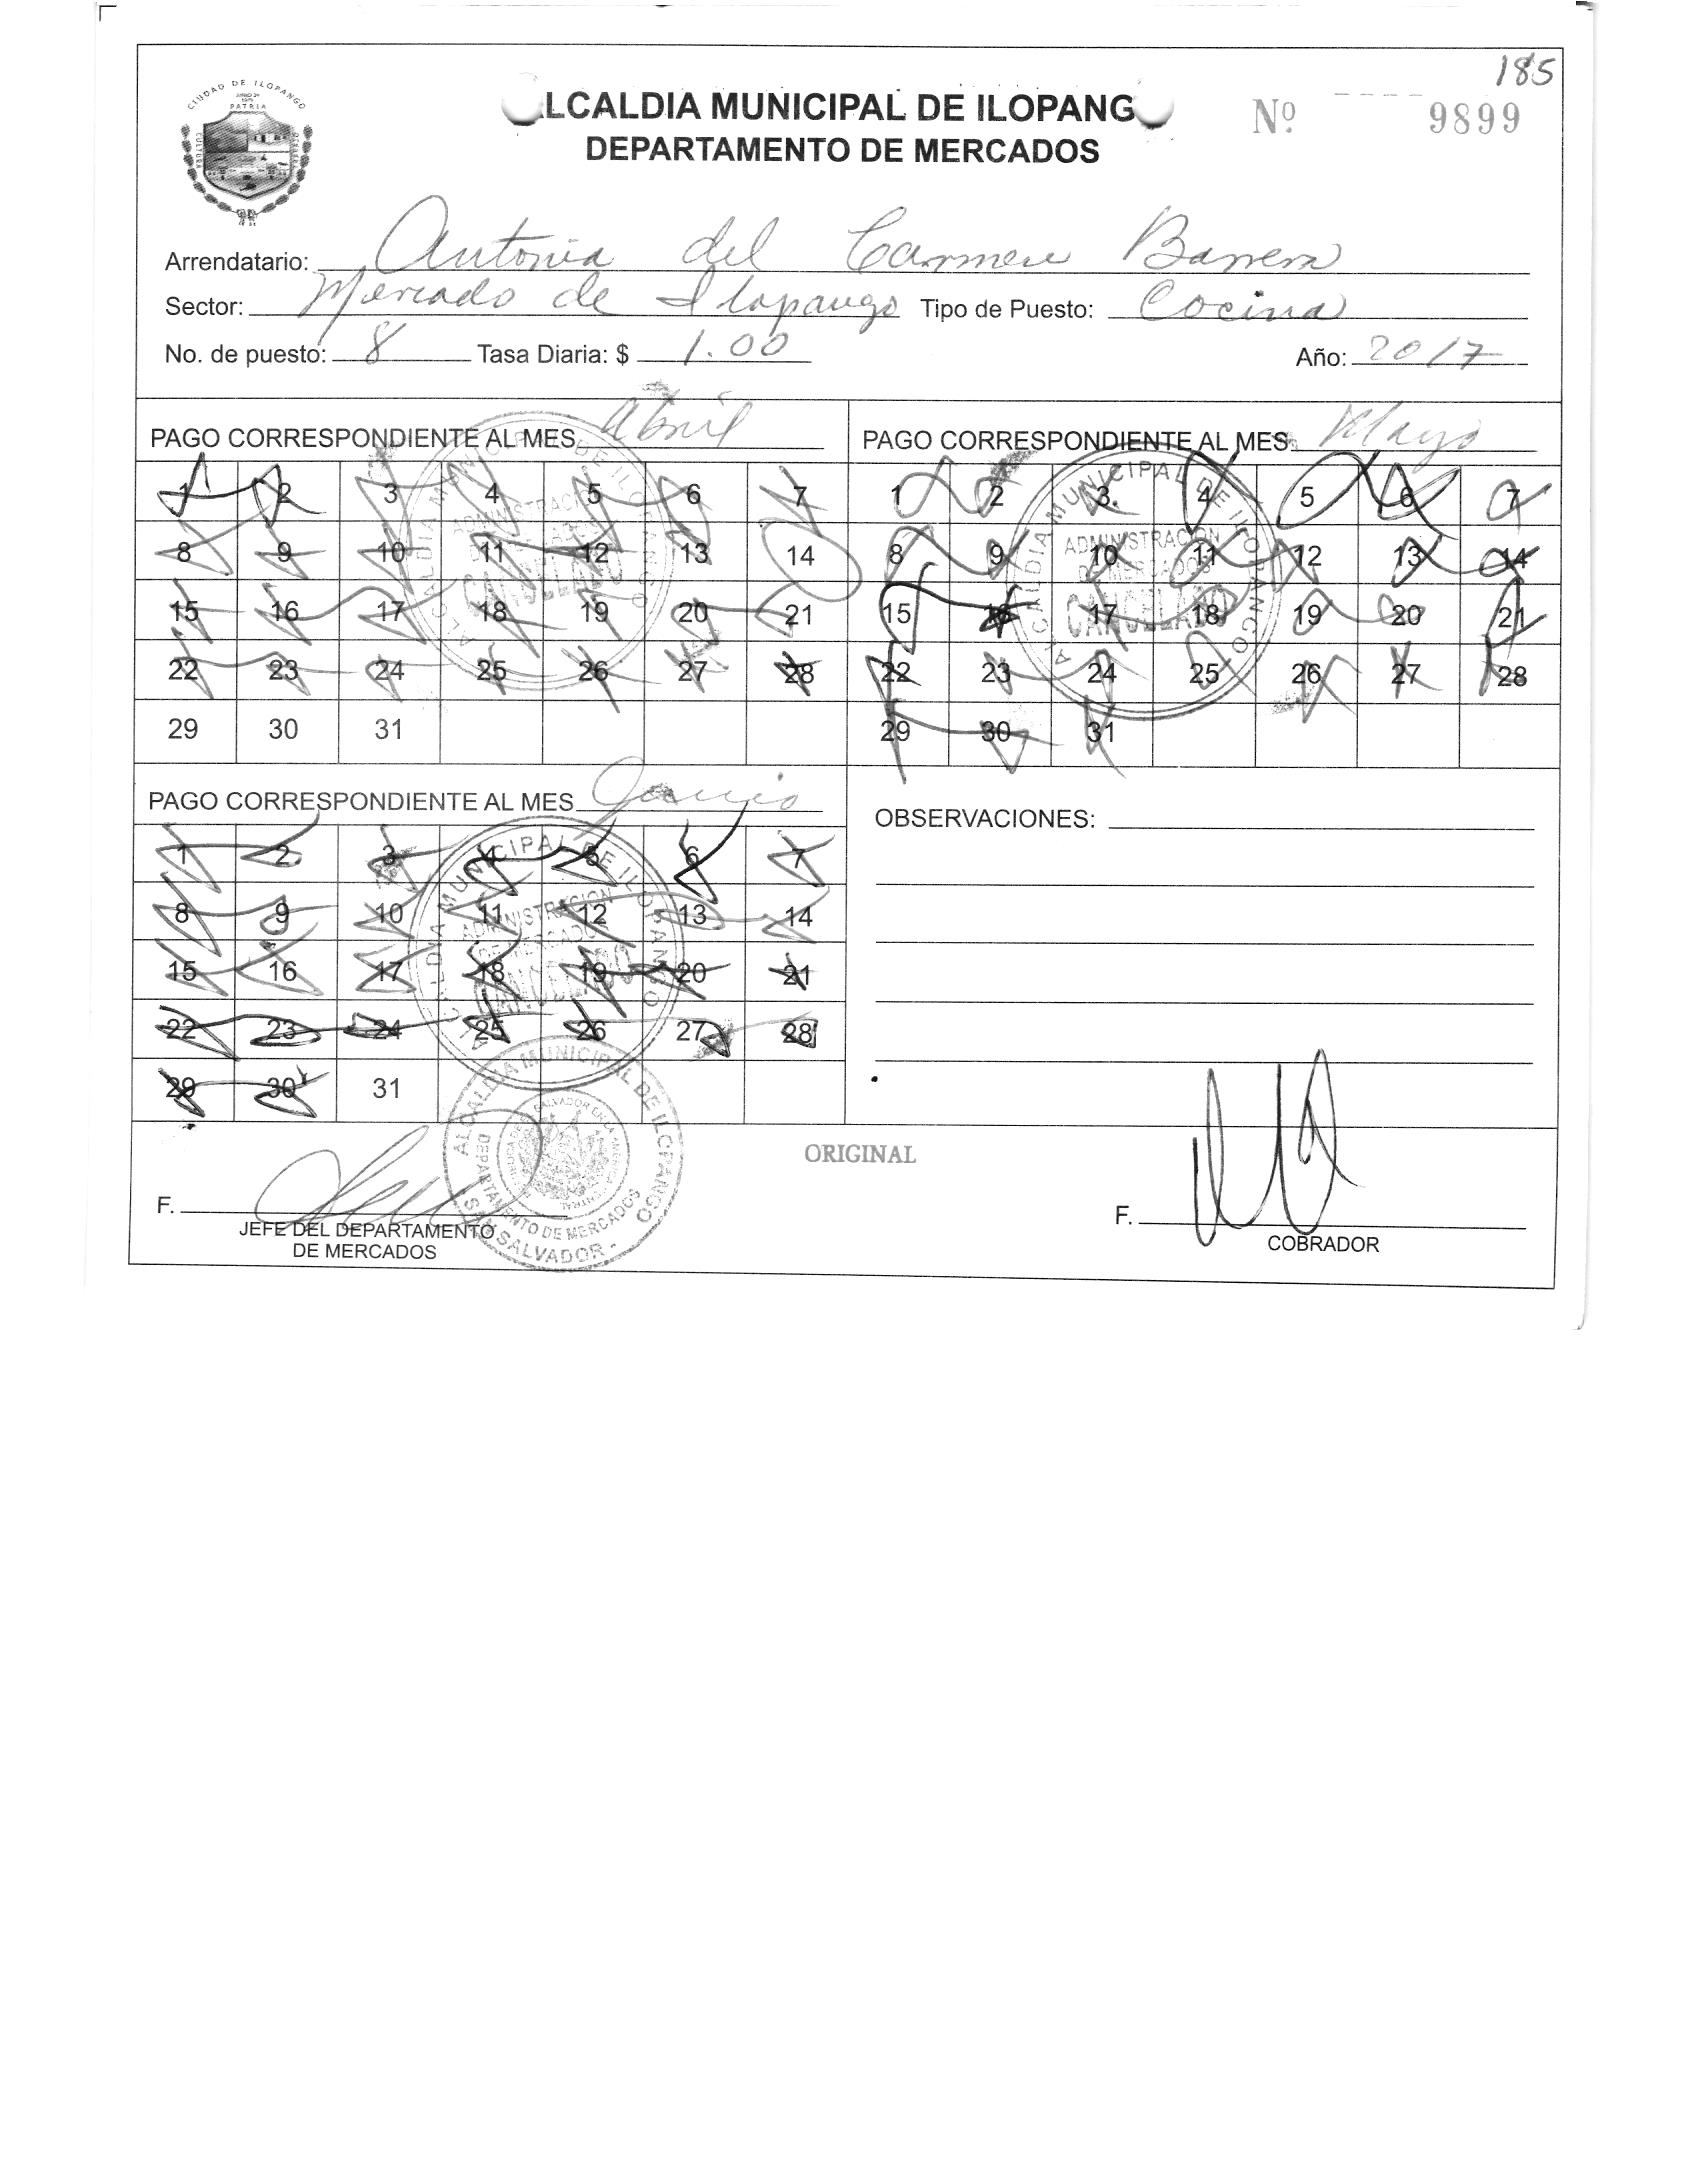 185
CIUDAD DE ILOPANGO
PATRIA
CULTURA
ALCALDIA MUNICIPAL DE ILOPANGO
Nº 9899
DEPARTAMENTO DE MERCADOS
Arrendatario: Antonia del Carmen Barrera
Sector: Mercado de Ilopango Tipo de Puesto: Cocina
No. de puesto: 8 Tasa Diaria: $ 1.00 Año: 2017
PAGO CORRESPONDIENTE AL MES Abril
1 2 3 4 5 6 7
8 9 10 11 12 13 14
15 16 17 18 19 20 21
22 23 24 25 26 27 28
29 30 31
ALCALDIA MUNICIPAL DE ILOPANGO
ADMINISTRACION
DE MERCADOS
CANCELADO
PAGO CORRESPONDIENTE AL MES Mayo
1 2 3 4 5 6 7
8 9 10 11 12 13 14
15 16 17 18 19 20 21
22 23 24 25 26 27 28
29 30 31
ALCALDIA MUNICIPAL DE ILOPANGO
ADMINISTRACION
DE MERCADOS
CANCELADO
PAGO CORRESPONDIENTE AL MES Junio
1 2 3 4 5 6 7
8 9 10 11 12 13 14
15 16 17 18 19 20 21
22 23 24 25 26 27 28
29 30 31
ALCALDIA MUNICIPAL DE ILOPANGO
ADMINISTRACION
DE MERCADOS
CANCELADO
OBSERVACIONES:
ALCALDIA MUNICIPAL DE ILOPANGO
DEPARTAMENTO DE MERCADOS
SAN SALVADOR
ORIGINAL
F.
JEFE DEL DEPARTAMENTO
DE MERCADOS
F.
COBRADOR